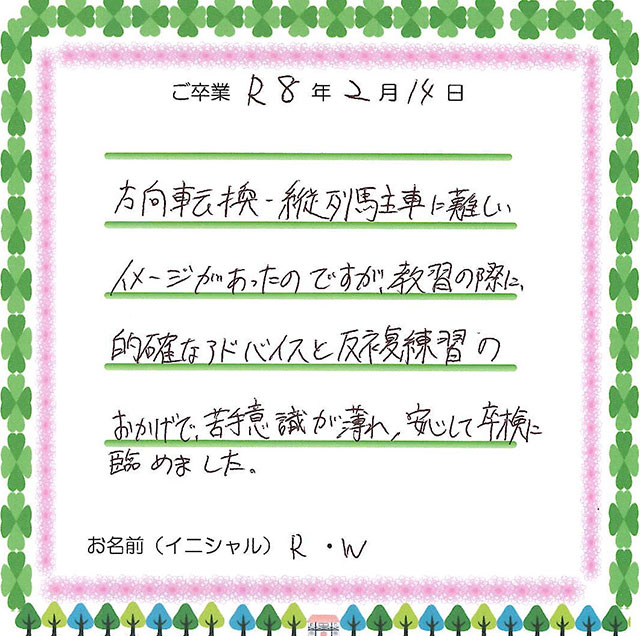 ご卒業 R8年2月14日
方向転換-縦列駐車に難しい
イメージがあったのですが、教習の際に、
的確なアドバイスと反復練習の
おかげで、苦手意識が薄れ、安心して卒検に
臨めました。
お名前（イニシャル） R・W